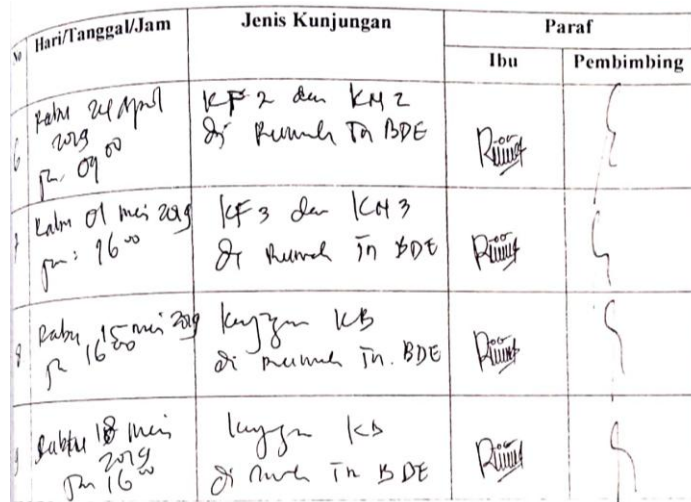 No
Hari/Tanggal/Jam
Jenis Kunjungan
Paraf
Ibu
Pembimbing
6
Rabu 24 April
2019
jm. 09 00
KF 2 dan KN 2
di Rumah Tn BDE
7
Rabu 01 mei 2019
jm: 16 00
KF 3 dan KN 3
di Rumah Tn BDE
8
Rabu 15 mei 2019
jm 16 00
KB
di Rumah Tn. BDE
9
Sabtu 18 Mei
2019
jm 16 00
KB
di Rumah Tn BDE